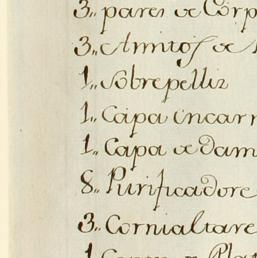 3,, pares de Corp
3,, Amitos de
1,, Sobrepelliz
1,, Capa incarn
1,, Capa de dam
8,, Purificadore
3,, Cornialtare
1